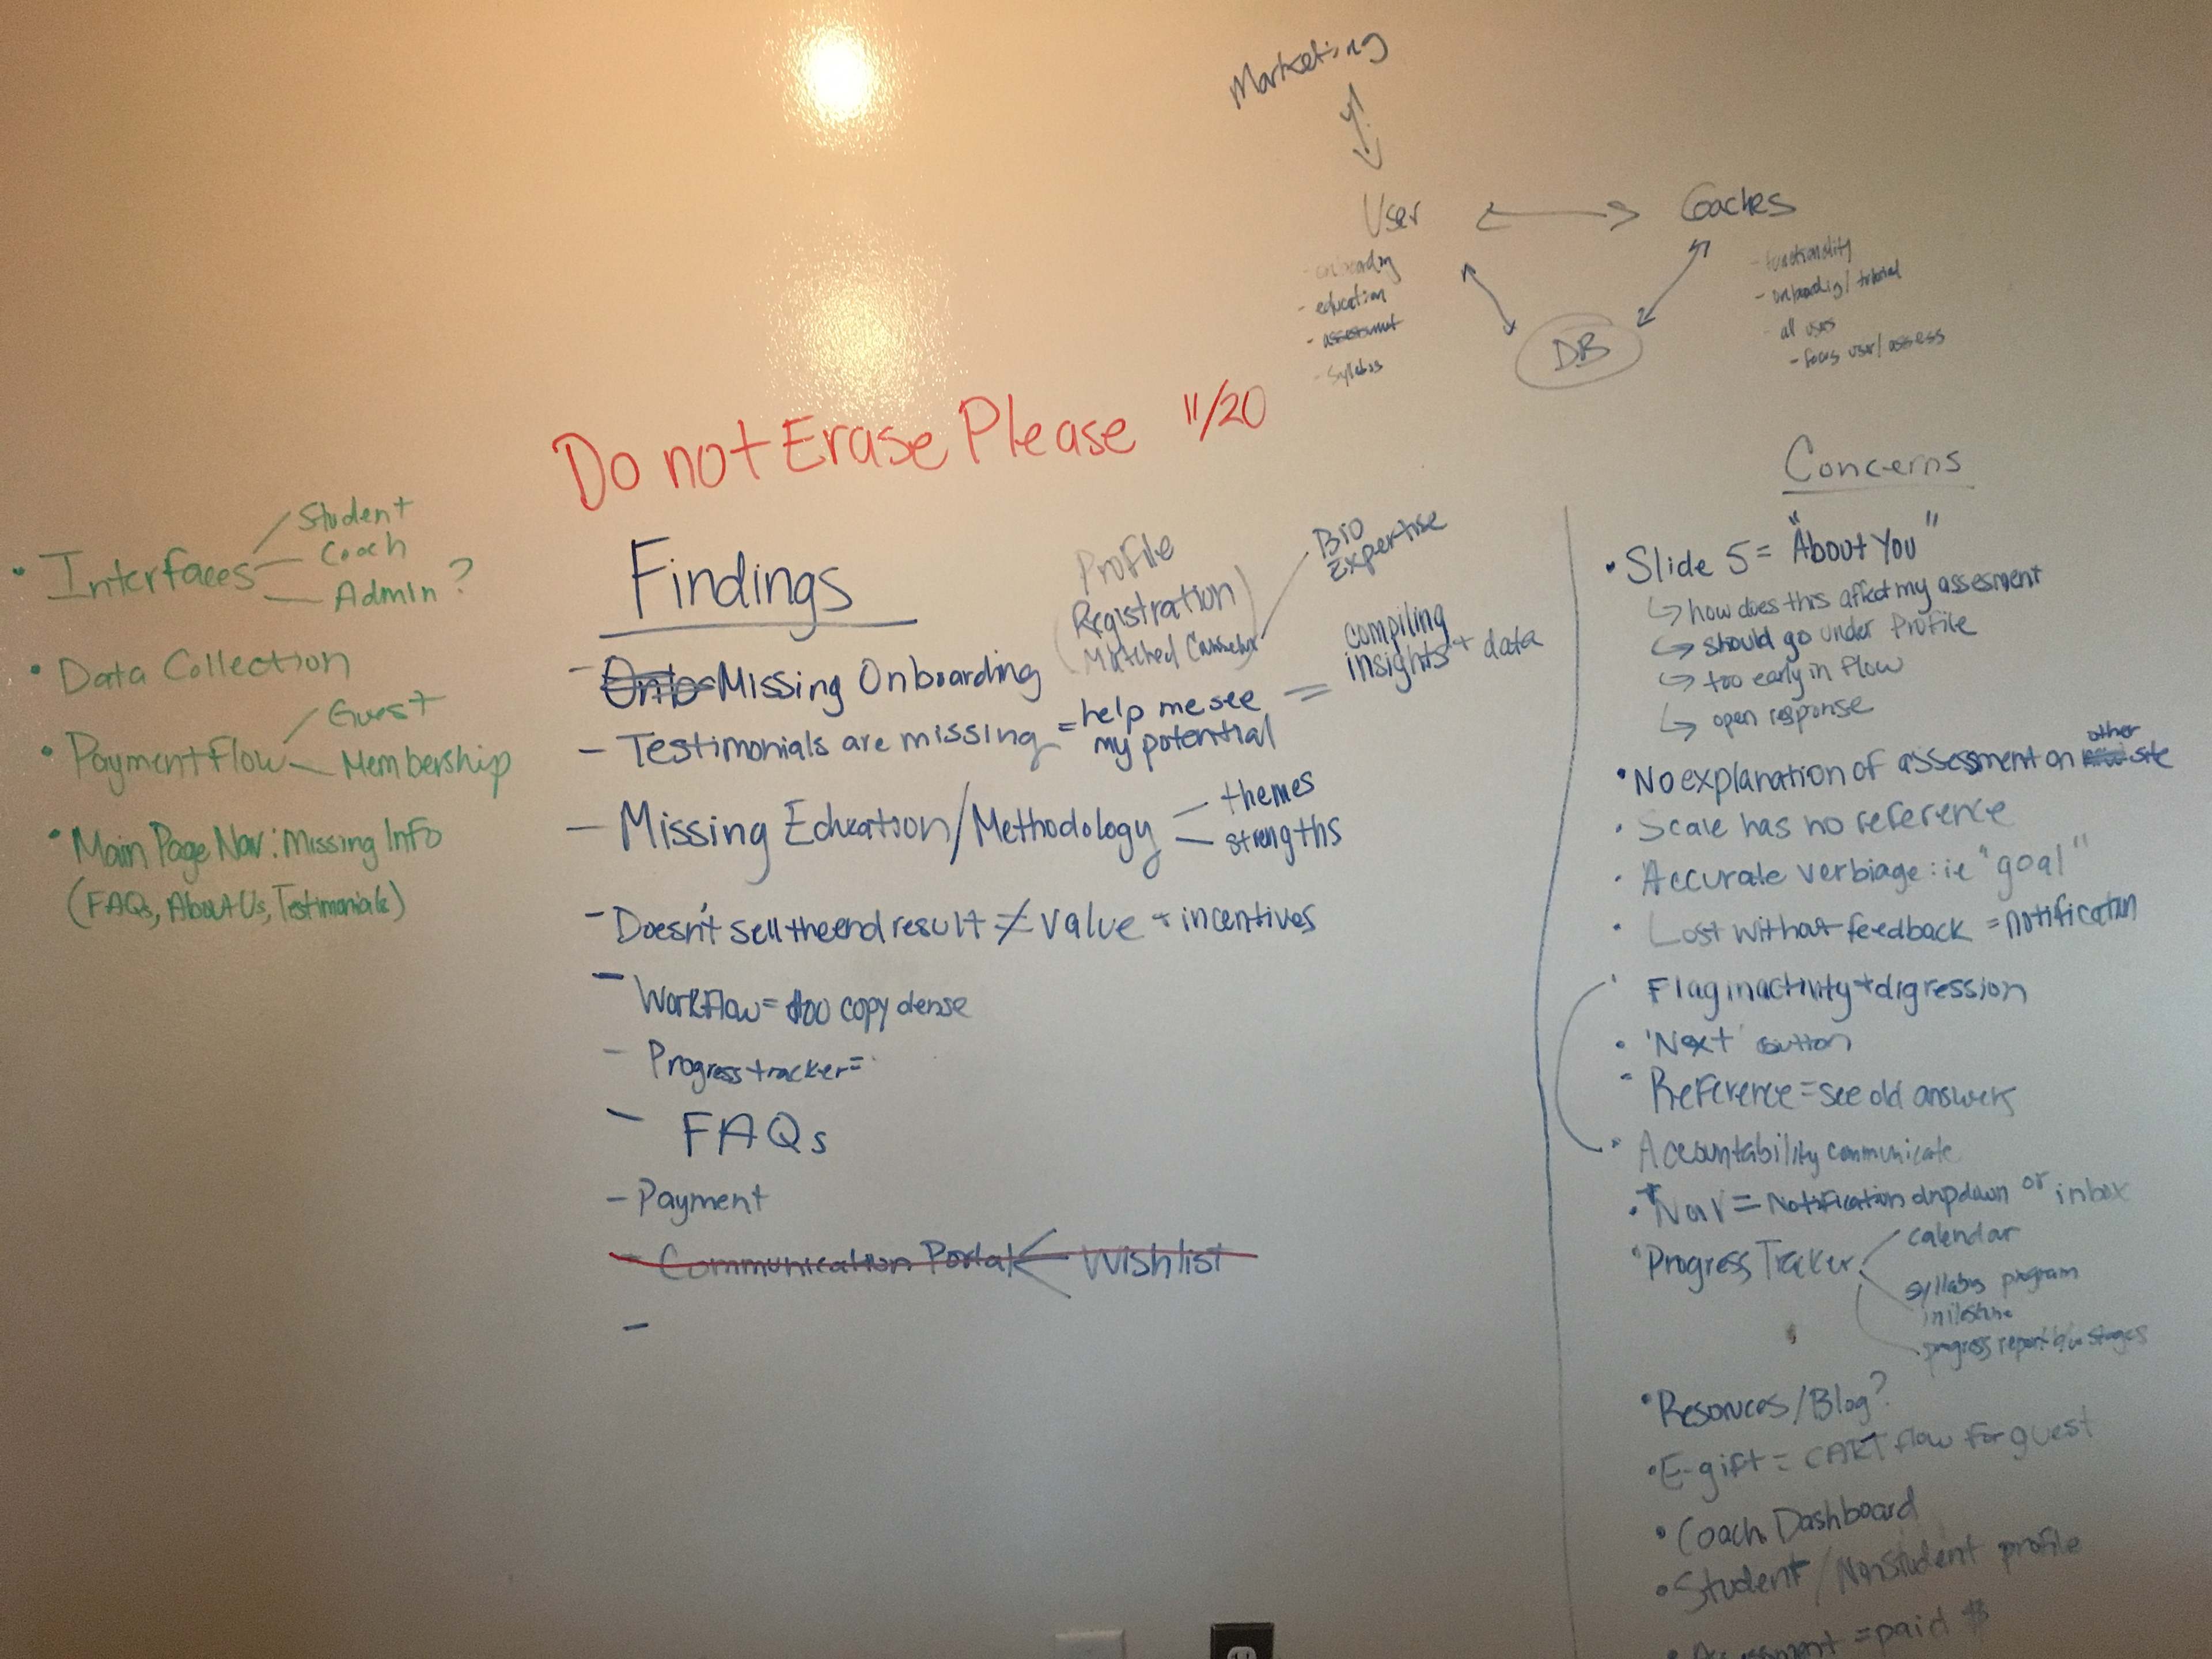 Marketing
User
Coaches
- onboarding
- education
- assessment
- Syllabus
- functionality
- onboarding/tutorial
- all users
- focus user/assess
DB
Do not Erase Please 11/20
• Interfaces
Student
Coach
Admin?
• Data Collection
• Payment Flow
Guest
Membership
• Main Page Nav: Missing Info
(FAQs, About Us, Testimonials)
Findings
Profile
Registration
Matched Counselor
Bio
Expertise
- Onbo Missing Onboarding
- Testimonials are missing = help me see
my potential
= compiling
insights + data
- Missing Education/Methodology
themes
strengths
- Doesn't sell the end result ≠ value + incentives
- Workflow = too copy dense
- Progress tracker =
- FAQs
- Payment
- Communication Portal ← Wishlist
-
Concerns
• Slide 5 = "About You"
↳ how does this affect my assesment
↳ should go under Profile
↳ too early in flow
↳ open response
• No explanation of assessment on other site
• Scale has no reference
• Accurate verbiage: ie "goal"
• Lost without feedback = notification
• Flag inactivity + digression
• 'Next' button
• Reference = see old answers
• Accountability communicate
• Nav = Notification dropdown or inbox
• Progress Tracker
calendar
syllabus program
milestone
progress report b/w stages
• Resources/Blog?
• E-gift = CART flow for guest
• Coach Dashboard
• Student/NonStudent profile
• Assessment = paid $